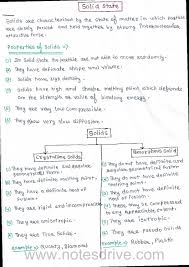 Solid State
Solids are characterised by the state of matter in which particles
are closely packed and held together by strong intermolecular
attractive force.
Properties of Solids :-
(1) In solid state the particles are not able to move randomly.
(2) They have definite shape and volume.
(3) Solids have high density.
(4) Solids have high and sharp melting point which depends
on the strength or value of binding energy.
(5) They are very low compressible.
(6) They show very slow diffusion.
Solids
Crystalline Solids
(1) They have definite and regular
geometrical form.
(2) They have definite melting point
(3) They have a definite heat of
fusion.
(4) They are rigid and incompressible
(5) They are anisotropic
(6) They are True Solids.
example :- Quartz, Diamond
Amorphous Solids
(1) They do not have definite and
regular geometrical form.
(2) They do not have definite
melting point.
(3) They do not have definite
heat of fusion.
(4) These may be compressed
to any appreciable extent.
(5) They are isotropic
(6) They are pseudo Solids
example :- Rubber, Plastic
www.notesdrive.com